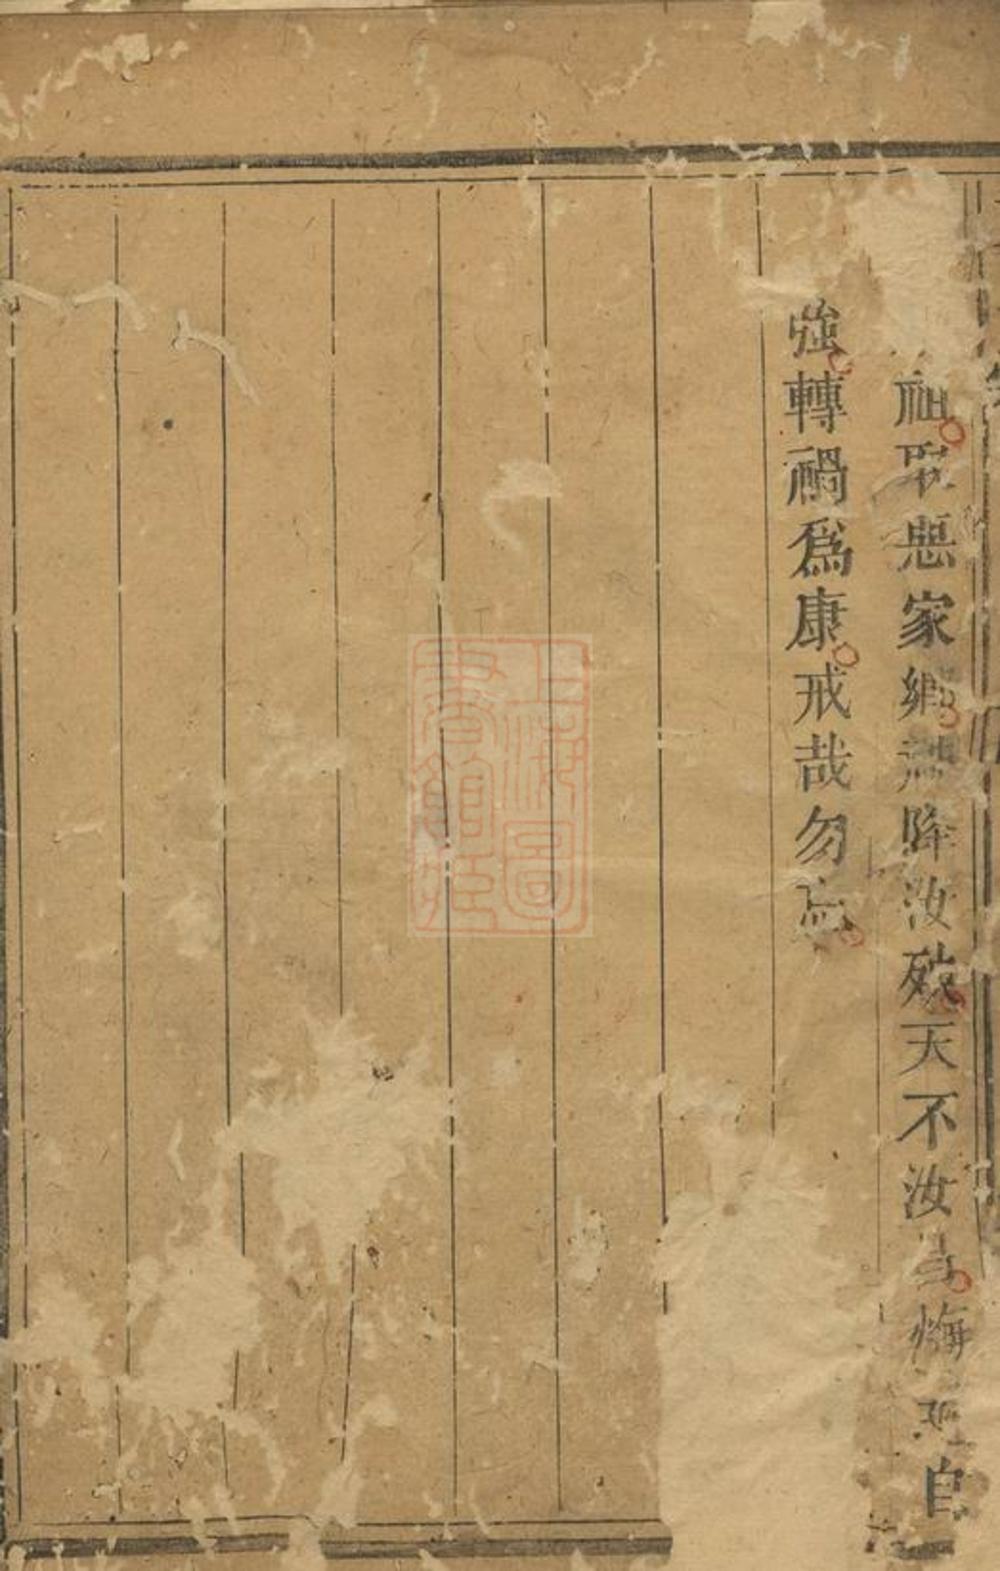 祖取惡家鄉降汝殃天不汝悔自
強轉禍爲康戒哉勿忘
上海圖
書館藏